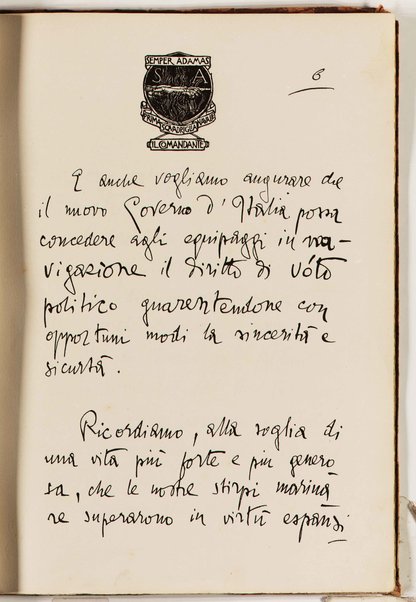 SEMPER ADAMAS
S A
PRIMA SQUADRIGLIA NAVALE
IL COMANDANTE
6
E anche vogliamo augurare che
il nuovo Governo d'Italia possa
concedere agli equipaggi in na-
vigazione il diritto di voto
politico guarentendone con
opportuni modi la sincerità e
sicurtà.
Ricordiamo, alla soglia di
una vita più forte e più genero
sa, che le nostre stirpi marina
re superarono in virtù espansi